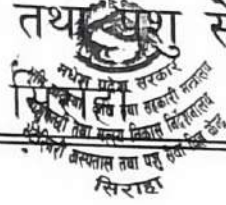 तथा पशु से
सिराहा
मधेश प्रदेश सरकार
तथा सहकारी मन्त्रालय
तथा मत्स्य विकास निर्देशनालय
भेटेरिनरी अस्पताल तथा पशु सेवा विज्ञ केन्द्र
सिराहा